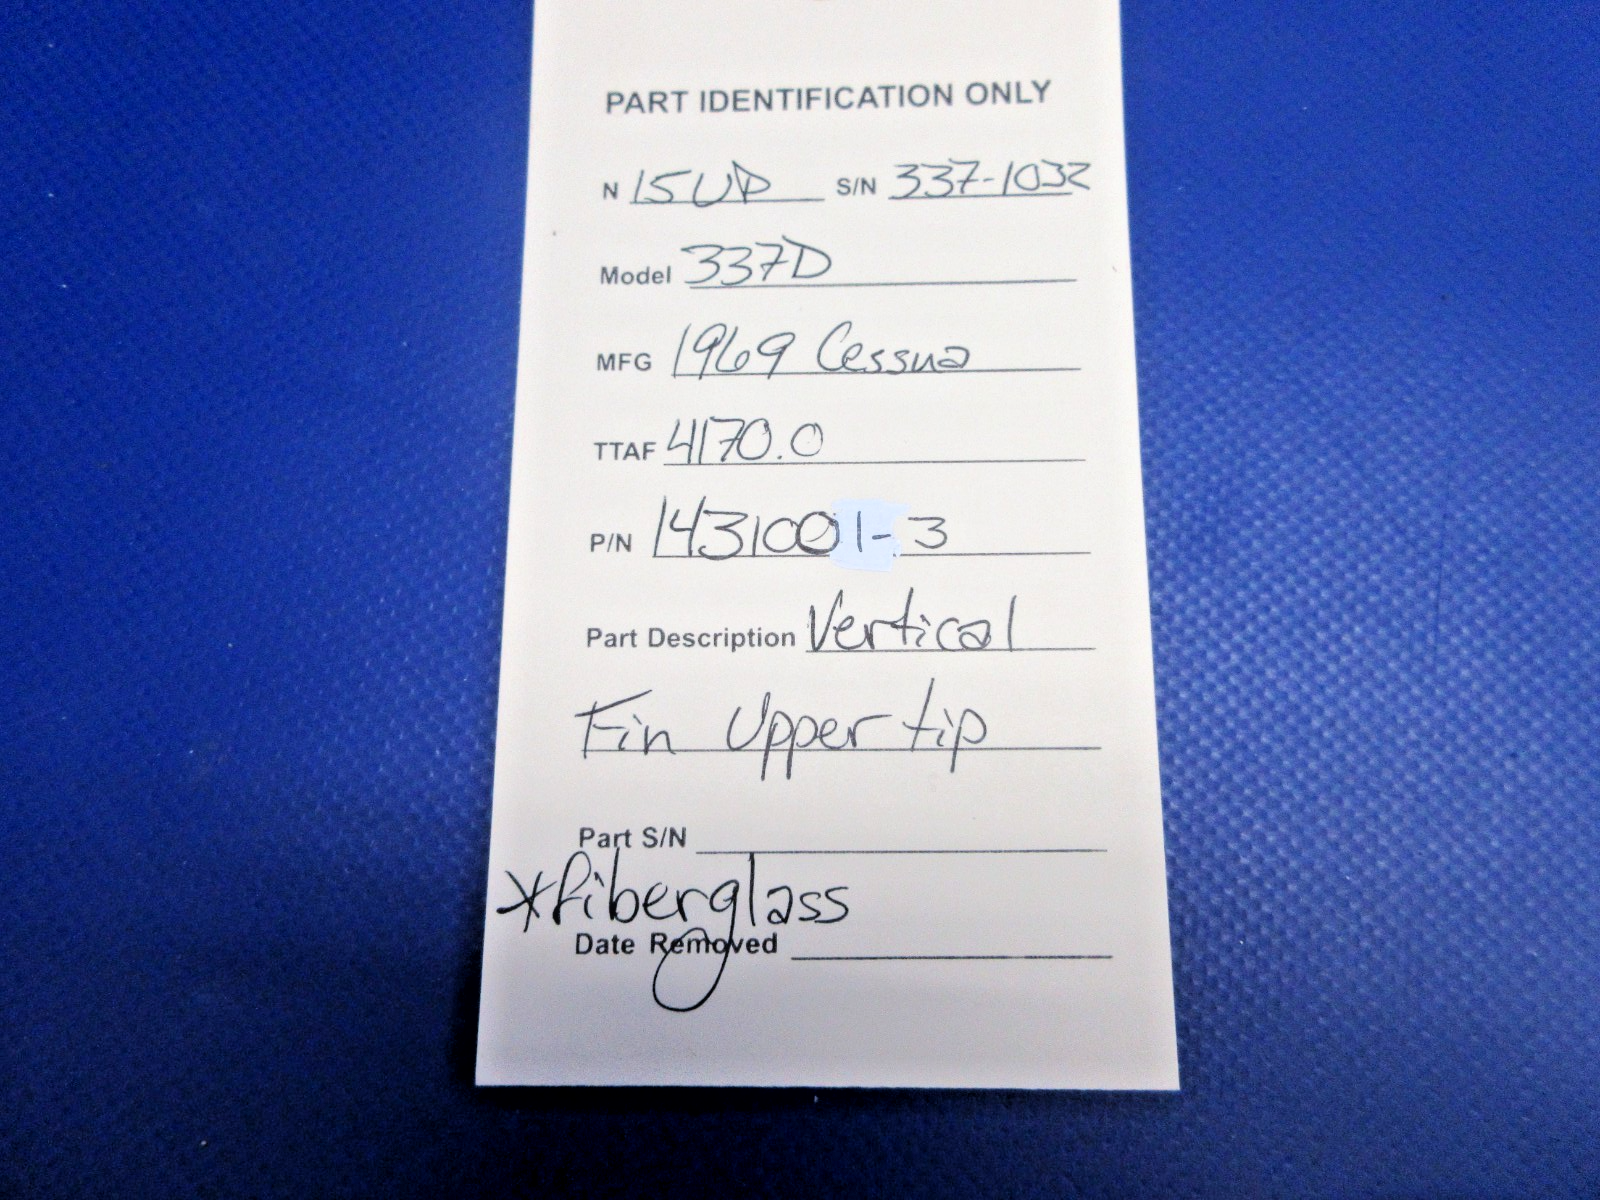 PART IDENTIFICATION ONLY
N 15UP S/N 337-1032
Model 337D
MFG 1969 Cessna
TTAF 4170.0
P/N 1431001-3
Part Description Vertical
Fin Upper tip
Part S/N
*fiberglass
Date Removed